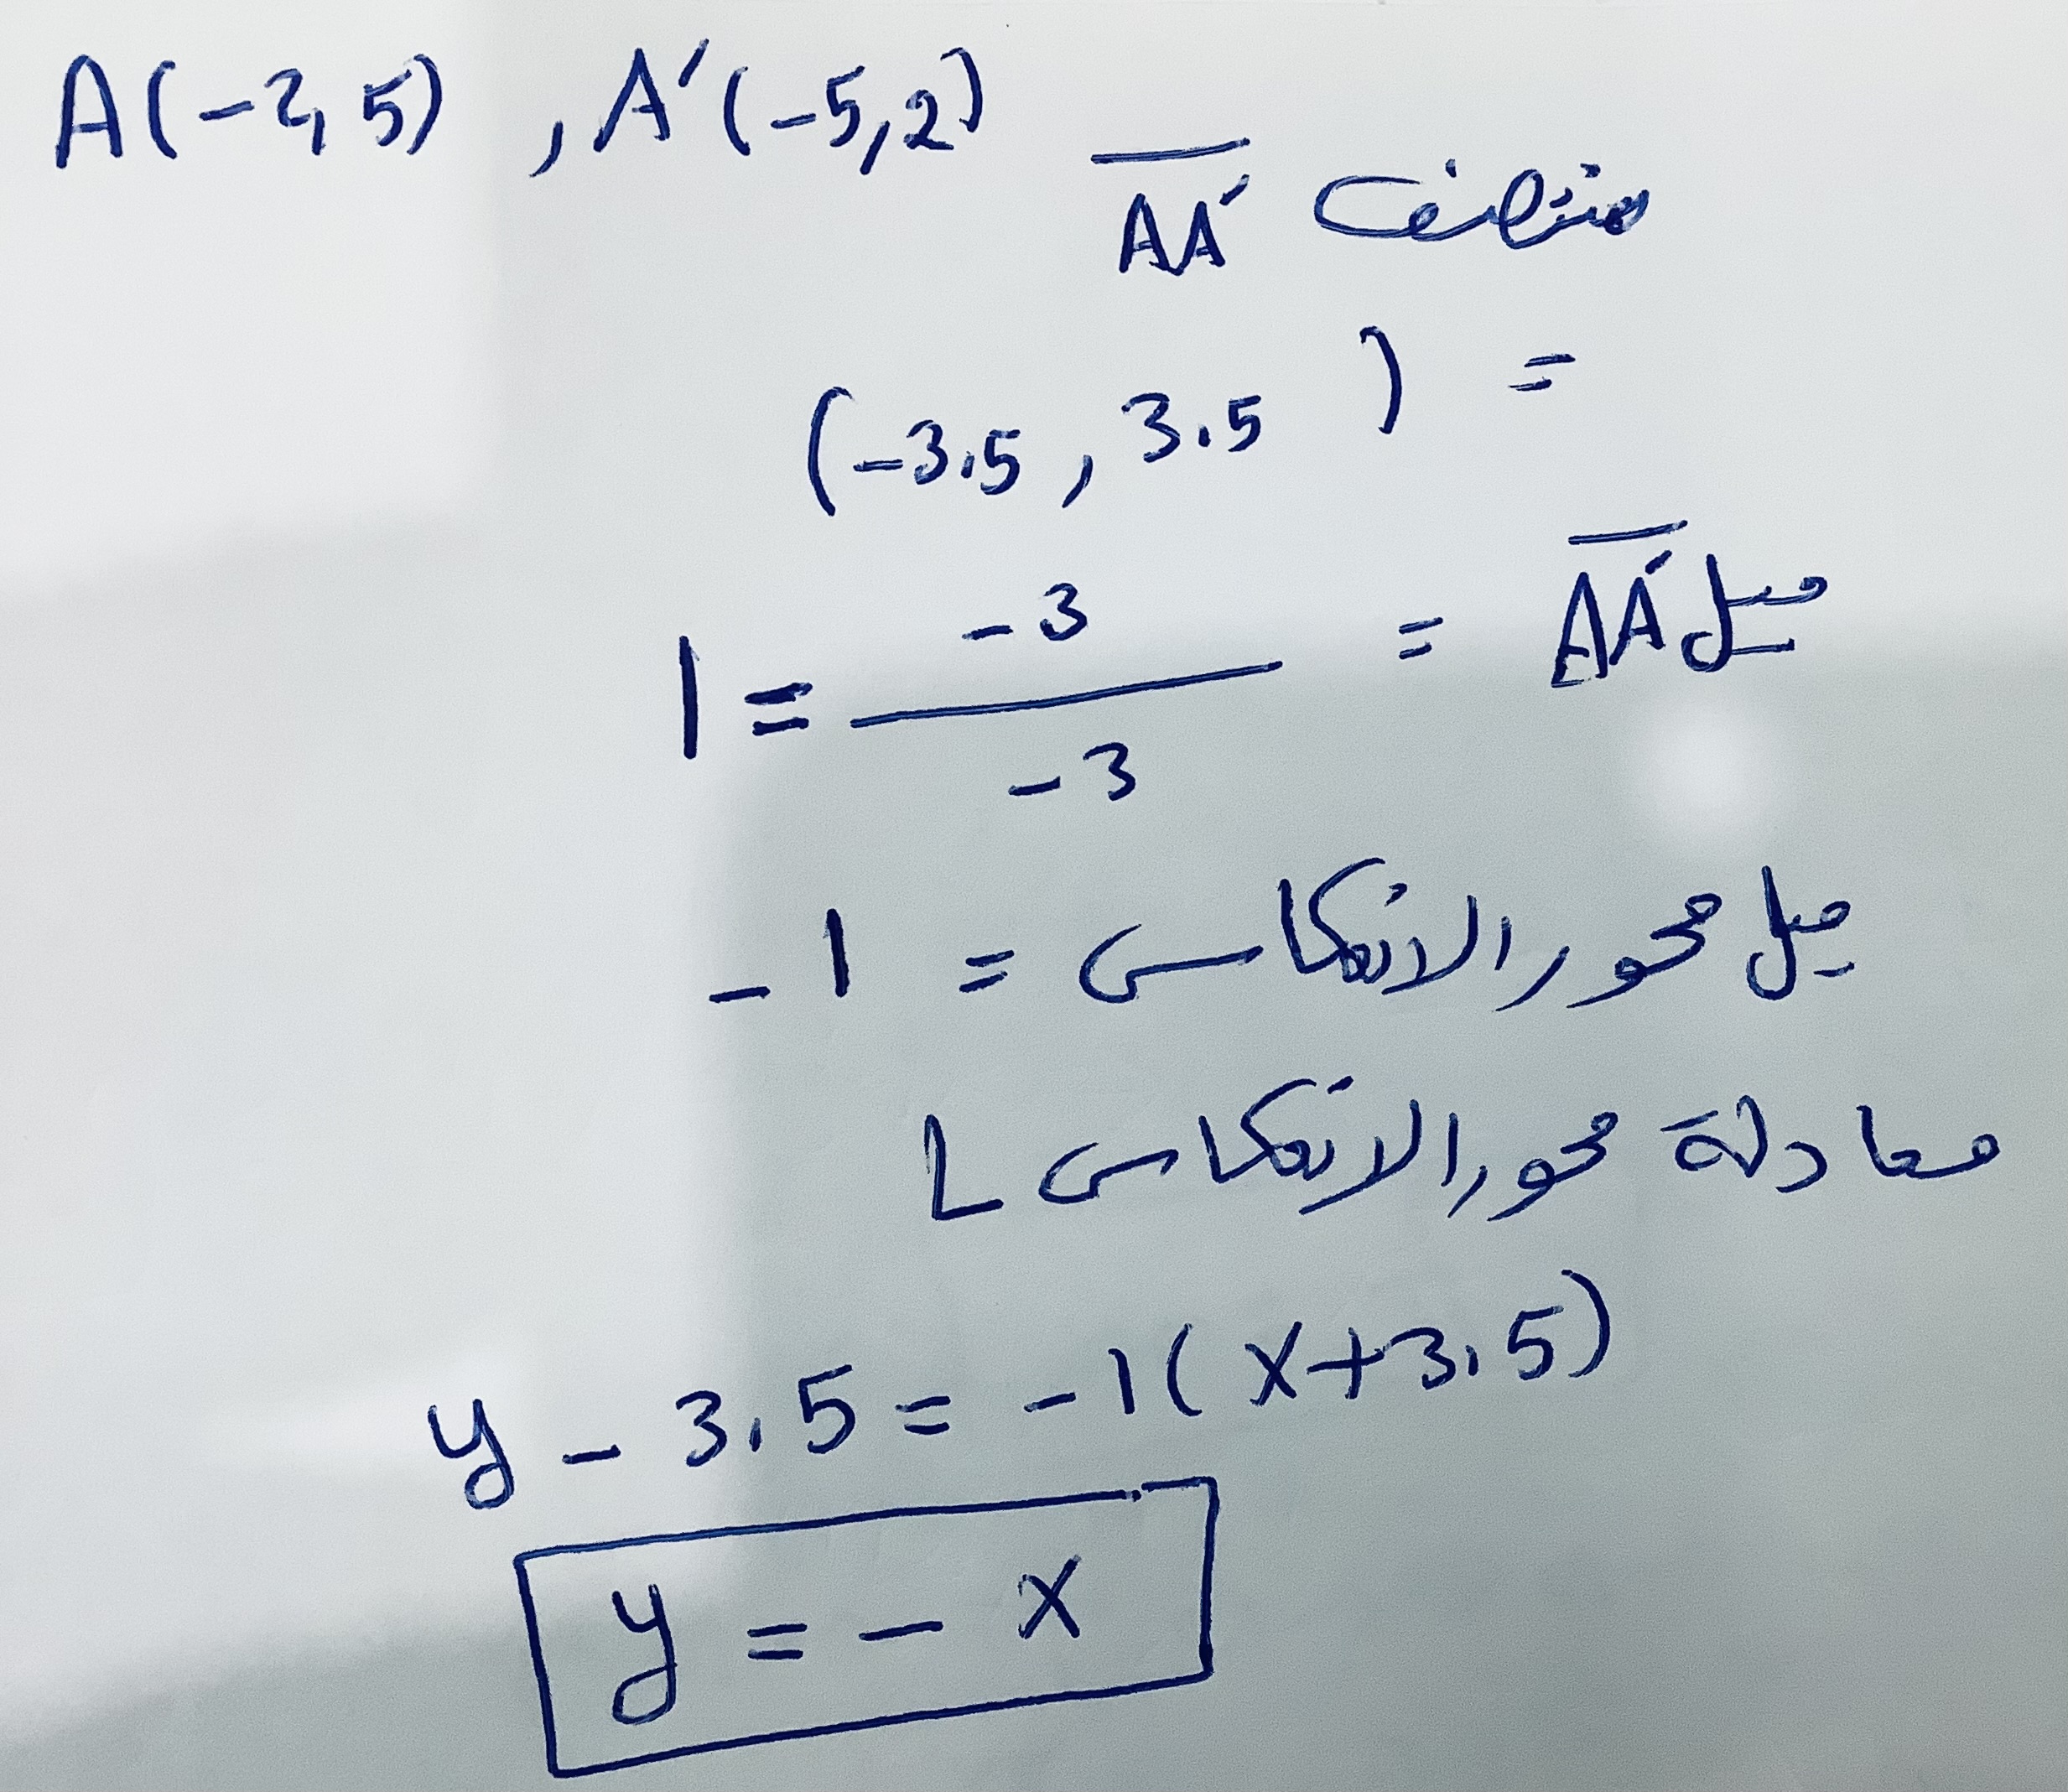 A(-2,5) , A'(-5,2)
منتصف AA'
= (-3.5 , 3.5)
ميل AA' = -3/-3 = 1
ميل محور الانعكاس = -1
معادلة محور الانعكاس L
y - 3.5 = -1(x+3.5)
y = - x